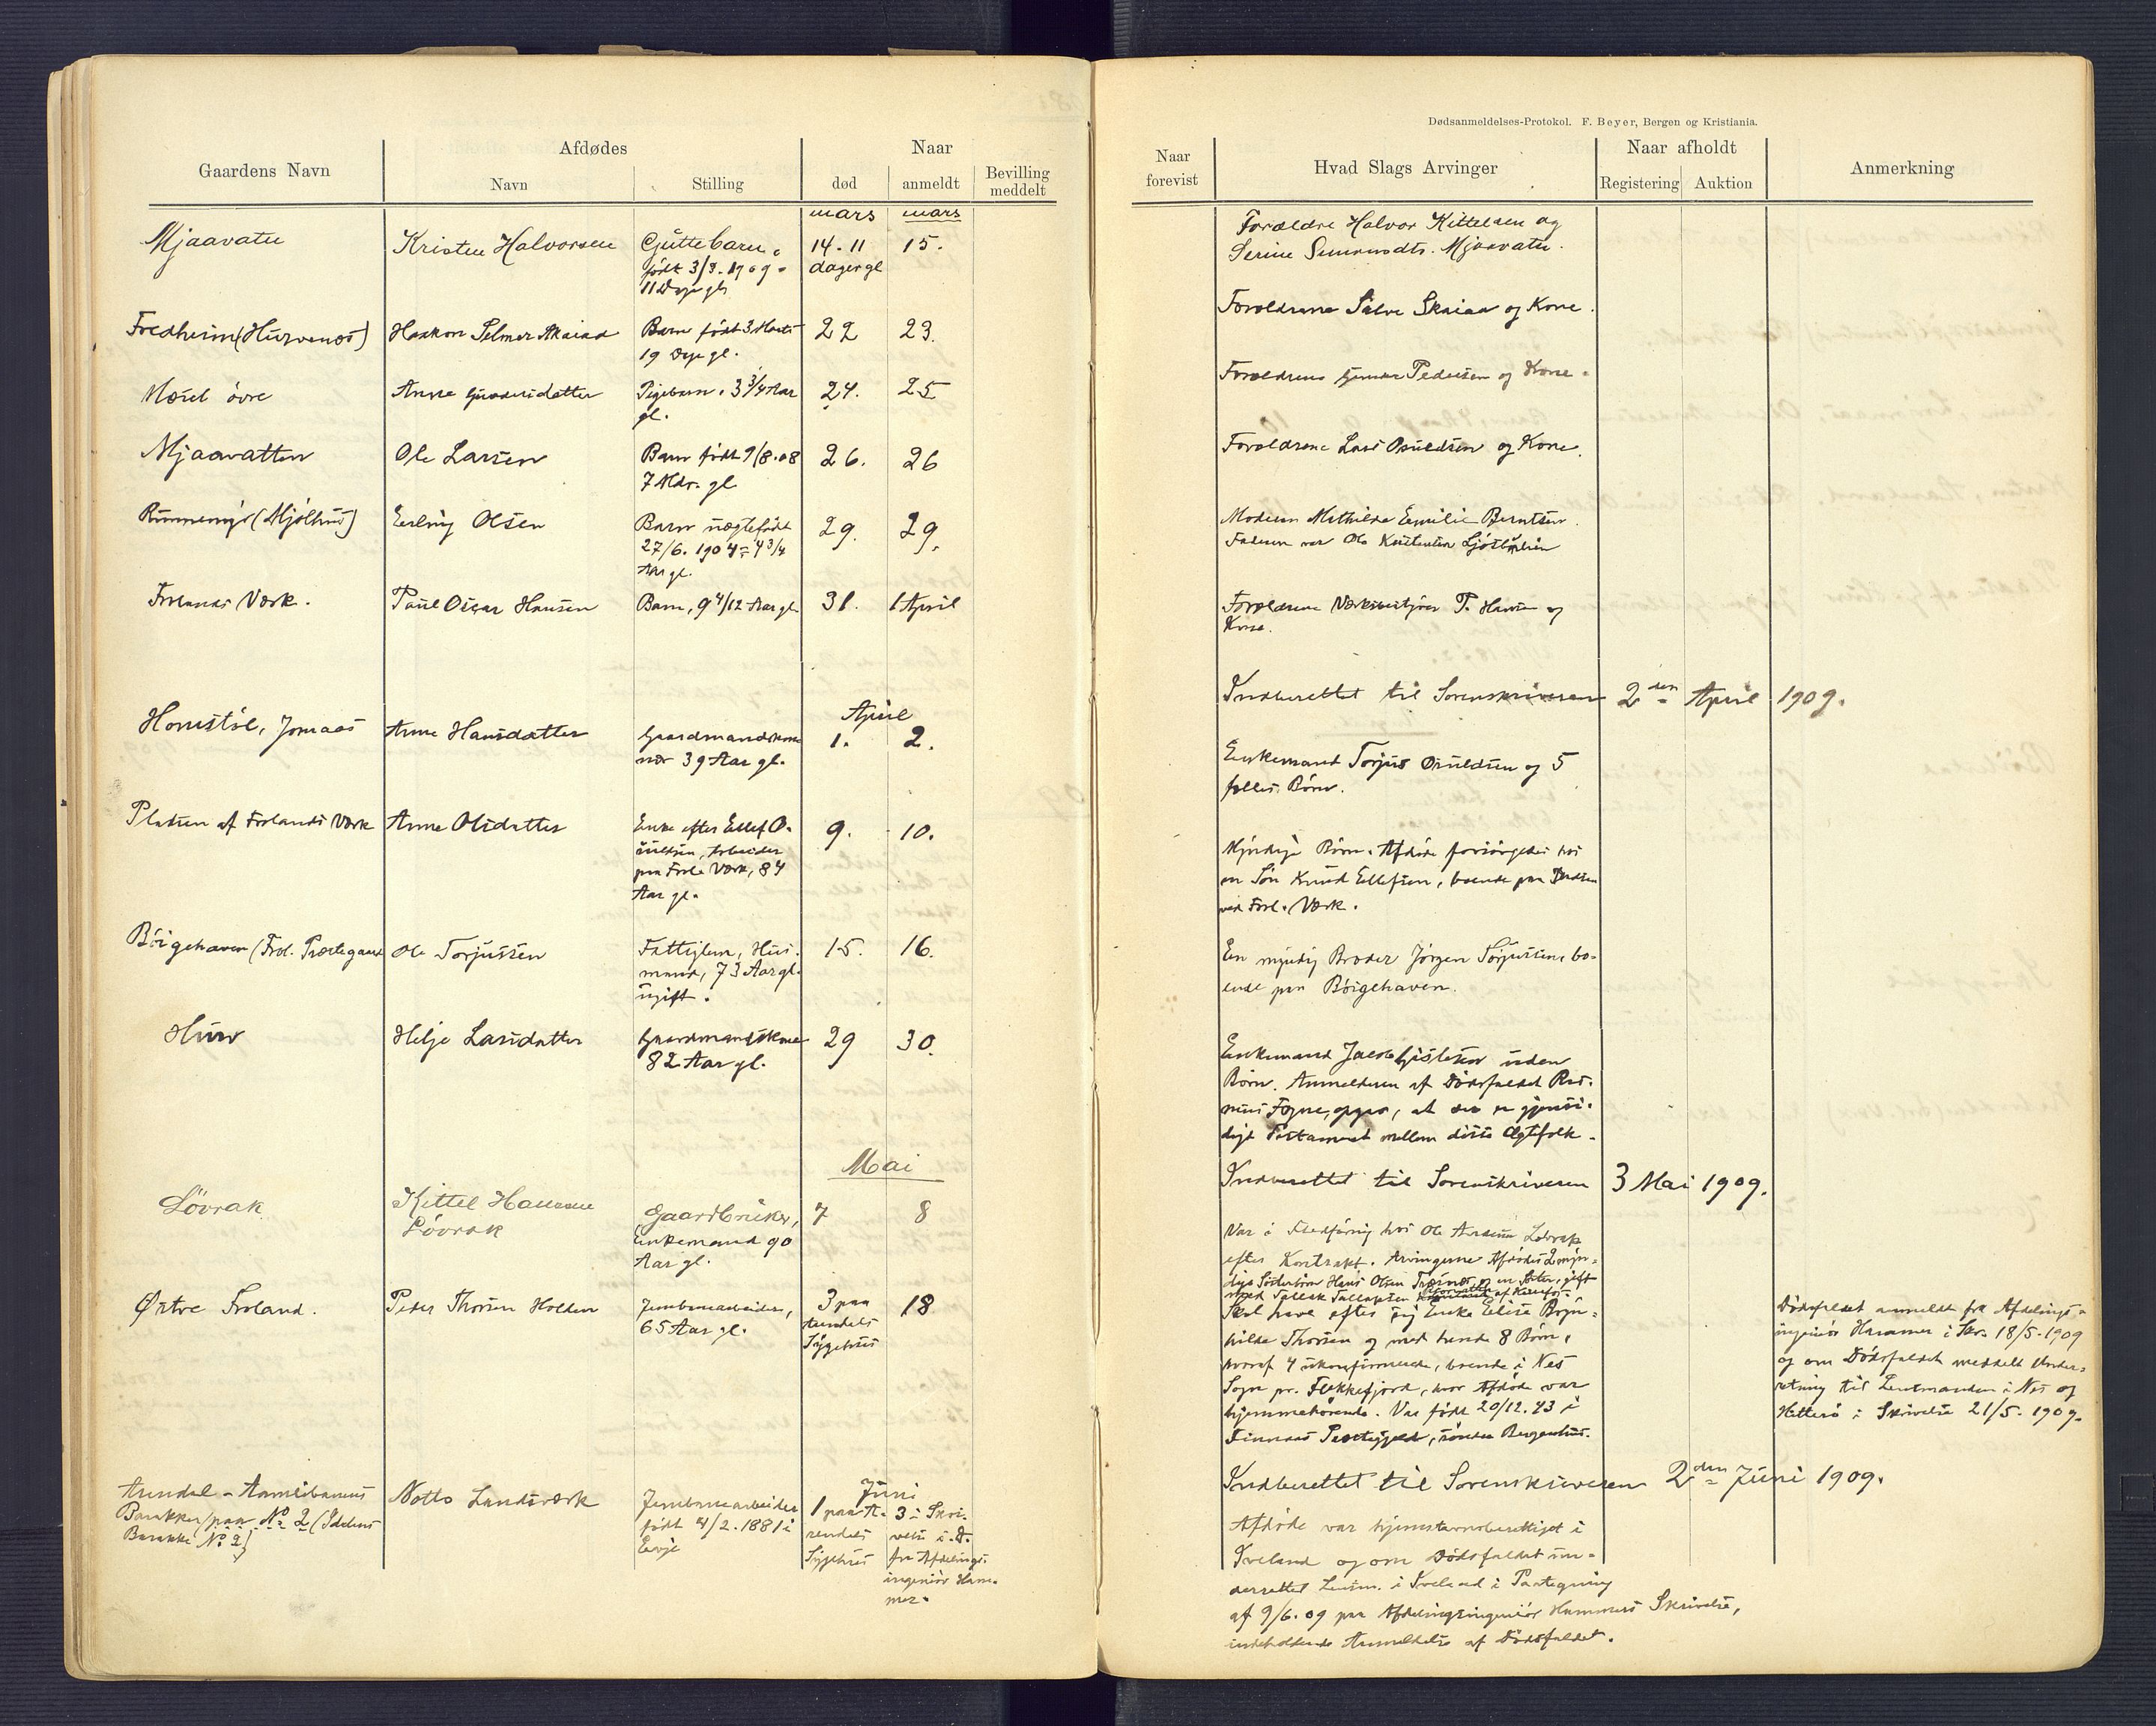 Dødsanmeldelses-Protokol. F. Beyer, Bergen og Kristiania.
Gaardens Navn
Afdødes
Navn
Stilling
Naar
død
anmeldt
Bevilling
meddelt
Naar
forevist
Hvad Slags Arvinger
Naar afholdt
Registering
Auktion
Anmerkning
mars mars
Mjaavatn Kristen Halvorsen Guttebarn 14. 11 15.
født 3/3. 1909 dager gl
11 Dage gl
Forældre Halvor Kittelsen og
Serine Mjaavatn.
Fredheim (Hurvenes) Haakon Selmer Skaiaa Barn født 3 Marts 22 23.
19 Dage gl.
Forældrene Salve Skaiaa og Kone.
øvre Anne Gunersdatter Pigebarn. 3 3/4 Aar 24. 25
gl.
Forældrene Gunder Pedersen og Kone.
Mjaavatten Ole Larsen Barn født 9/8.08 26. 26
7 Mdr. gl
Forældrene Lars Osuldsen og Kone.
(Mjølhus) Erling Olsen Barn uægtefødt 29. 29.
27/6. 1904 = 4 3/4
Aar gl.
Moderen Mathilde Emilie Berntsen.
Faderen var Ole Kristensen
Frolands Værk. Paul Oscar Hansen Barn, 9 4/12 Aar gl 31. 1 April
Forældrene Værksbestyrer P. Hansen og
Kone.
Indberettet til Sorenskriveren 2den April 1909.
April
Homstøl, Jomaas Anne Hansdatter Gaardmandskone 1. 2.
nær 39 Aar gl.
Enkemand Torjus Osuldsen og 5
fælles Børn.
Pladsen af Frolands Værk Anne Olsdatter Enke efter Ellef O- 9. 10.
suldsen, Arbeider
paa Frol. Værk, 84
Aar gl.
Myndige Børn. Afdøde forsørgedes hos
en Søn Knud Ellefsen, boende paa Pladsen
ved Frol. Værk.
Bøigehaven (Frol. Præstegaard Ole Torjussen Fattiglem, Hus- 15. 16.
mand, 73 Aar gl.
ugift.
En myndig Broder Jørgen Torjussen, bo-
ende paa Bøigehaven.
Hurv Helje Larsdatter Gaardmandskone 29 30.
82 Aar gl.
Enkemand Jacob Gislesen uden
Børn. Anmelderen af Dødsfaldet Ras-
mus Fogne, opgav, at der er gjensi-
digt Testament mellem disse Ægtefolk.
Indberettet til Sorenskriveren 3 Mai 1909.
Mai
Løvrak Kittel Hansen Gaardbruker, 7 8
Løvrak Enkemand 90
Aar gl.
Var i Fledføring hos Ole Løvrak
efter Kontrakt. Arvingerne Afdødes 2 myn-
dige Søsterbørn Hans Olsen og en Søster, gift
med Tallak Tallaksen
Østre Froland. Peder Thorsen Holden Jernbanearbeider, 3 paa 18
65 Aar gl. Arendals
Sygehus
Skal have efter sig Enke Elise Bryn-
hilde Thorsen og med hende 8 Børn,
hvoraf 4 ukonfirmerede, boende i Nes
Sogn pr. Flekkefjord, hvor Afdøde var
hjemmehørende. Var født 20/12. 43 i
Finnaas Præstegjæld, søndre Bergenhus.
Dødsfaldet anmeldt fra Afdelings-
ingeniør Hammer i Skr. 18/5-1909
og om Dødsfaldet meddelt Under-
retning til Lensmanden i Nes og
Hitterø i Skrivelse 21/5. 1909.
Indberettet til Sorenskriveren 2den Juni 1909.
Juni
Arendal-Aamlibanens Notto Landsværk Jernbanearbeider 1 paa A- 3 i Skri-
Barakker paa No 2 født 4/2.1881 i rendals velse i. D.
Barakke No 2) Evje Sygehus fra Afdelings-
ingeniør Ham-
mer.
Afdøde var hjemstavnsberettiget i
Iveland og om Dødsfaldet un-
derrettet Lensm. i Iveland i Paategning
af 9/6. 09 paa Afdelingsingeniør Hammers Skrivelse,
indeholdende Anmeldelse af Dødsfaldet.